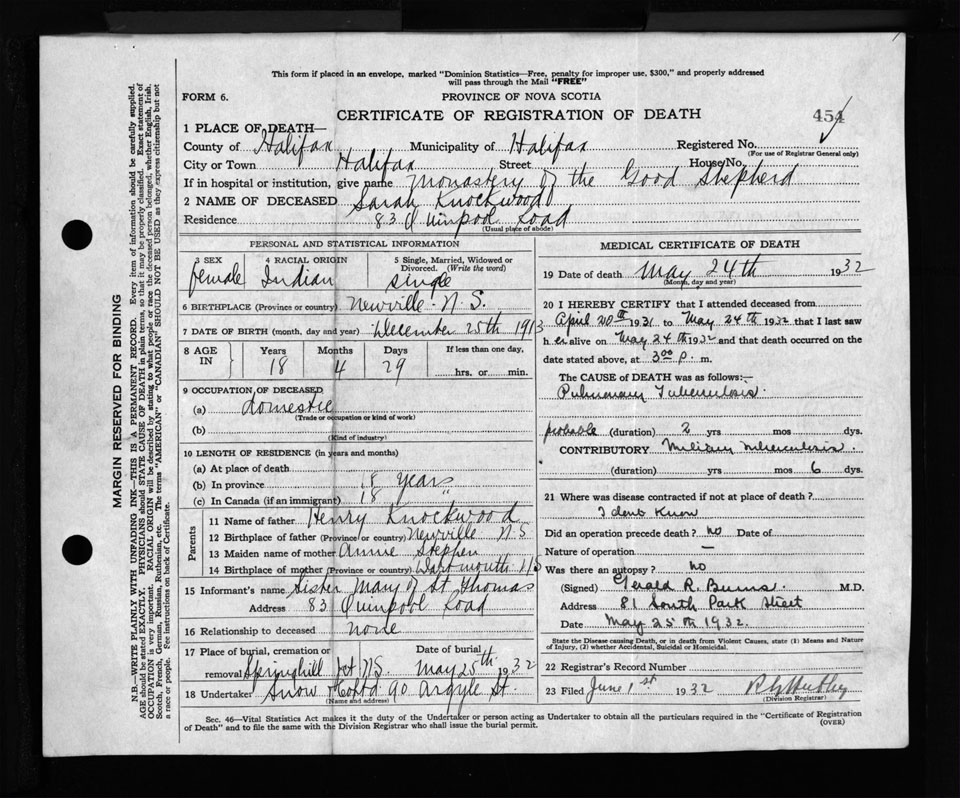 This form if placed in an envelope, marked "Dominion Statistics—Free, penalty for improper use, $300," and properly addressed
will pass through the Mail "FREE"
FORM 6.
PROVINCE OF NOVA SCOTIA
CERTIFICATE OF REGISTRATION OF DEATH
454
1 PLACE OF DEATH—
County of Halifax Municipality of Halifax Registered No.
(For use of Registrar General only)
City or Town Halifax Street House No.
If in hospital or institution, give name Monastery of the Good Shepherd
2 NAME OF DECEASED Sarah Knockwood
Residence 83 Quinpool Road
(Usual place of abode)
PERSONAL AND STATISTICAL INFORMATION
3 SEX 4 RACIAL ORIGIN 5 Single, Married, Widowed or
Divorced. (Write the word)
female Indian single
6 BIRTHPLACE (Province or country) Newville N.S.
7 DATE OF BIRTH (month, day and year) December 25th 1913
8 AGE IN Years Months Days If less than one day,
18 4 29 hrs. or min.
9 OCCUPATION OF DECEASED
(a) domestic
(Trade or occupation or kind of work)
(b)
(Kind of industry)
10 LENGTH OF RESIDENCE (in years and months)
(a) At place of death
(b) In province 18 years
(c) In Canada (if an immigrant) 18 "
Parents
11 Name of father Henry Knockwood
12 Birthplace of father (Province or country) Newville N S
13 Maiden name of mother Annie Stephen
14 Birthplace of mother (Province or country) Dartmouth N S
15 Informant's name Sister Mary of St Thomas
Address 83 Quinpool Road
16 Relationship to deceased none
17 Place of burial, cremation or Date of burial
removal Springhill Jct N.S. May 25th 1932
18 Undertaker Snow & Co Ltd 90 Argyle St.
(Name and address)
MEDICAL CERTIFICATE OF DEATH
19 Date of death May 24th 1932
(Month, day and year)
20 I HEREBY CERTIFY that I attended deceased from
April 20th 1931 to May 24th 1932 that I last saw
h er alive on May 24th 1932 and that death occurred on the
date stated above, at 3.00 p. m.
The CAUSE OF DEATH was as follows:—
Pulmonary Tuberculosis
probable (duration) 2 yrs mos dys.
CONTRIBUTORY Miliary tuberculosis
(duration) yrs mos 6 dys.
21 Where was disease contracted if not at place of death?
I don't know
Did an operation precede death? no Date of
Nature of operation —
Was there an autopsy? no
(Signed) Gerald R. Burns. M.D.
Address 81 South Park Street
Date May 25th 1932.
State the Disease causing Death, or in death from Violent Causes, state (1) Means and Nature
of Injury, (2) whether Accidental, Suicidal or Homicidal.
22 Registrar's Record Number
23 Filed June 1st 1932
(Division Registrar)
Sec. 46—Vital Statistics Act makes it the duty of the Undertaker or person acting as Undertaker to obtain all the particulars required in the "Certificate of Registration
of Death" and to file the same with the Division Registrar who shall issue the burial permit.
(OVER)
MARGIN RESERVED FOR BINDING
N.B.—WRITE PLAINLY WITH UNFADING INK—THIS IS A PERMANENT RECORD. Every item of information should be carefully supplied.
AGE should be stated EXACTLY. PHYSICIANS should STATE CAUSE OF DEATH in plain terms, so that it may be properly classified. Exact statement of
OCCUPATION is very important. RACIAL ORIGIN will be described by stating to what people or race the deceased person belonged, whether English, Irish,
Scotch, French, German, Russian, Ruthenian, etc. The terms "AMERICAN" or "CANADIAN" SHOULD NOT BE USED as they express citizenship but not
a race or people. See instructions on back of Certificate.